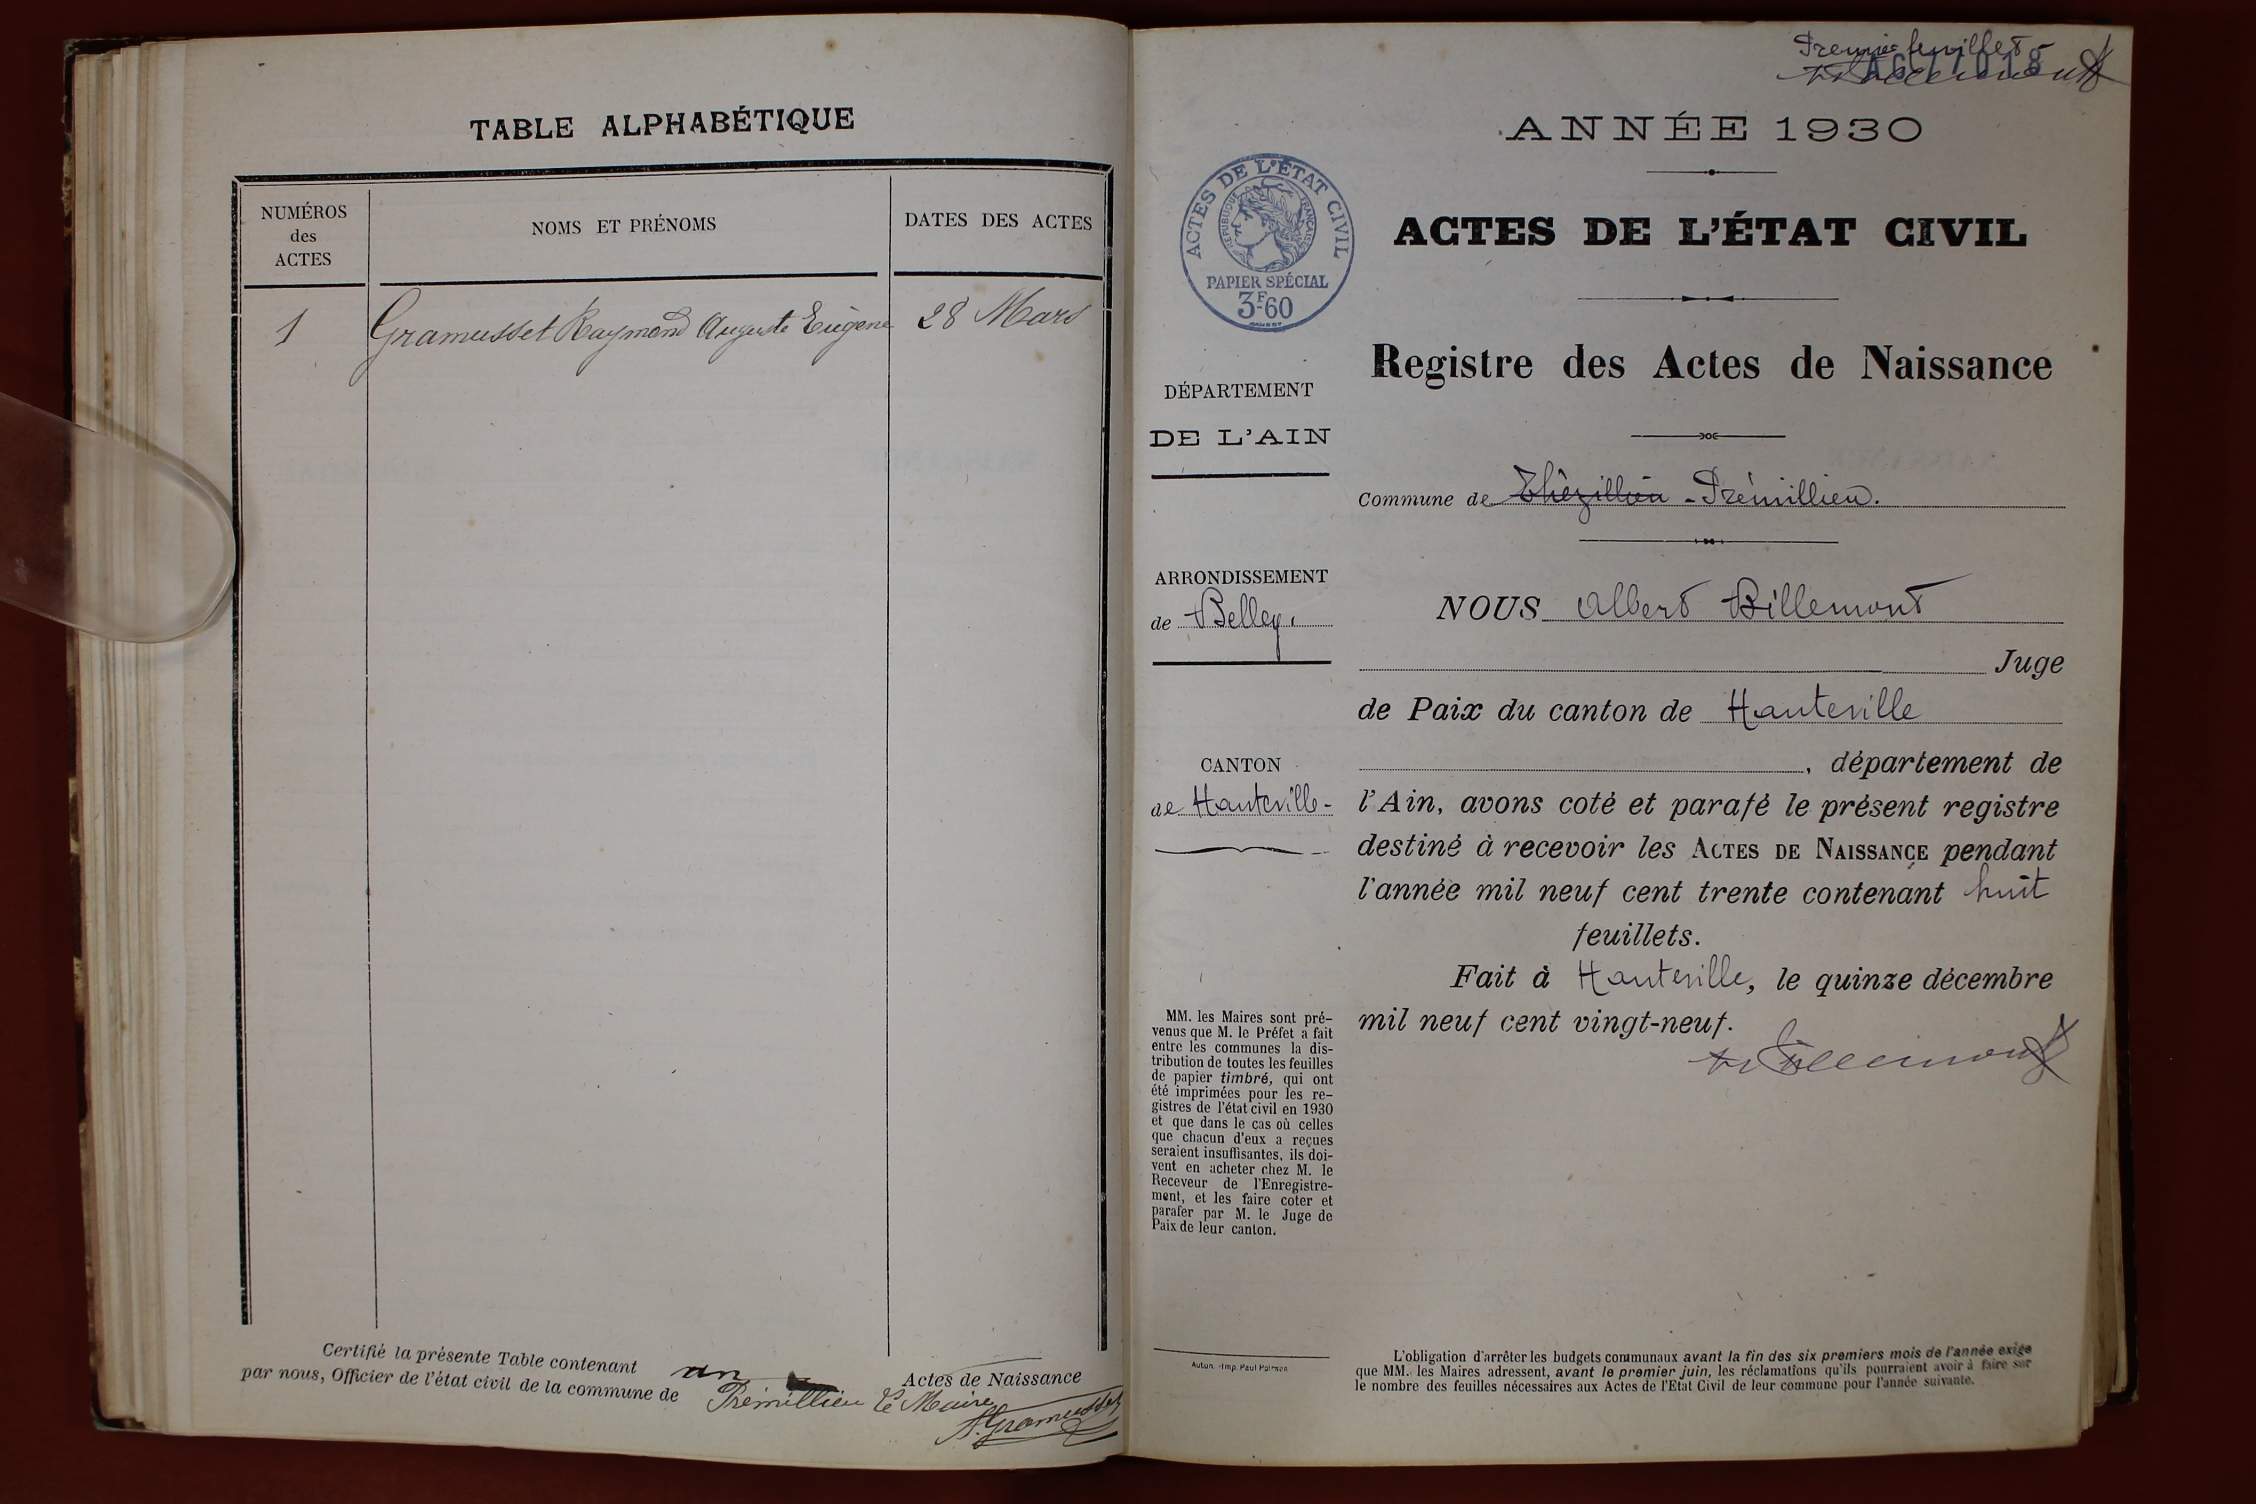 TABLE ALPHABÉTIQUE
NUMÉROS
des
ACTES
NOMS ET PRÉNOMS
DATES DES ACTES
1 Gramusset Raymond Auguste Eugène 28 Mars
Certifié la présente Table contenant un Actes de Naissance
par nous, Officier de l'état civil de la commune de Prémillieu Le Maire
A. Gramusset
Premier feuillet
ANNÉE 1930
ACTES DE L'ÉTAT CIVIL
RÉPUBLIQUE FRANÇAISE
PAPIER SPÉCIAL
3F-60
ACTES DE L'ÉTAT CIVIL
Registre des Actes de Naissance
DÉPARTEMENT
DE L'AIN
Commune de Thézillieu - Prémillieu.
ARRONDISSEMENT
de Belley.
CANTON
de Hauteville-
NOUS Albert Billemont
Juge
de Paix du canton de Hauteville
, département de
l'Ain, avons coté et parafé le présent registre
destiné à recevoir les ACTES DE NAISSANCE pendant
l'année mil neuf cent trente contenant huit
feuillets.
Fait à Hauteville, le quinze décembre
mil neuf cent vingt-neuf.
Billemont
MM. les Maires sont pré-
venus que M. le Préfet a fait
entre les communes la dis-
tribution de toutes les feuilles
de papier timbré, qui ont
été imprimées pour les re-
gistres de l'état civil en 1930
et que dans le cas où celles
que chacun d'eux a reçues
seraient insuffisantes, ils doi-
vent en acheter chez M. le
Receveur de l'Enregistre-
ment, et les faire coter et
parafer par M. le Juge de
Paix de leur canton.
Autun. -Imp. Paul
L'obligation d'arrêter les budgets communaux avant la fin des six premiers mois de l'année exige
que MM. les Maires adressent, avant le premier juin, les réclamations qu'ils pourraient avoir à faire sur
le nombre des feuilles nécessaires aux Actes de l'Etat Civil de leur commune pour l'année suivante.